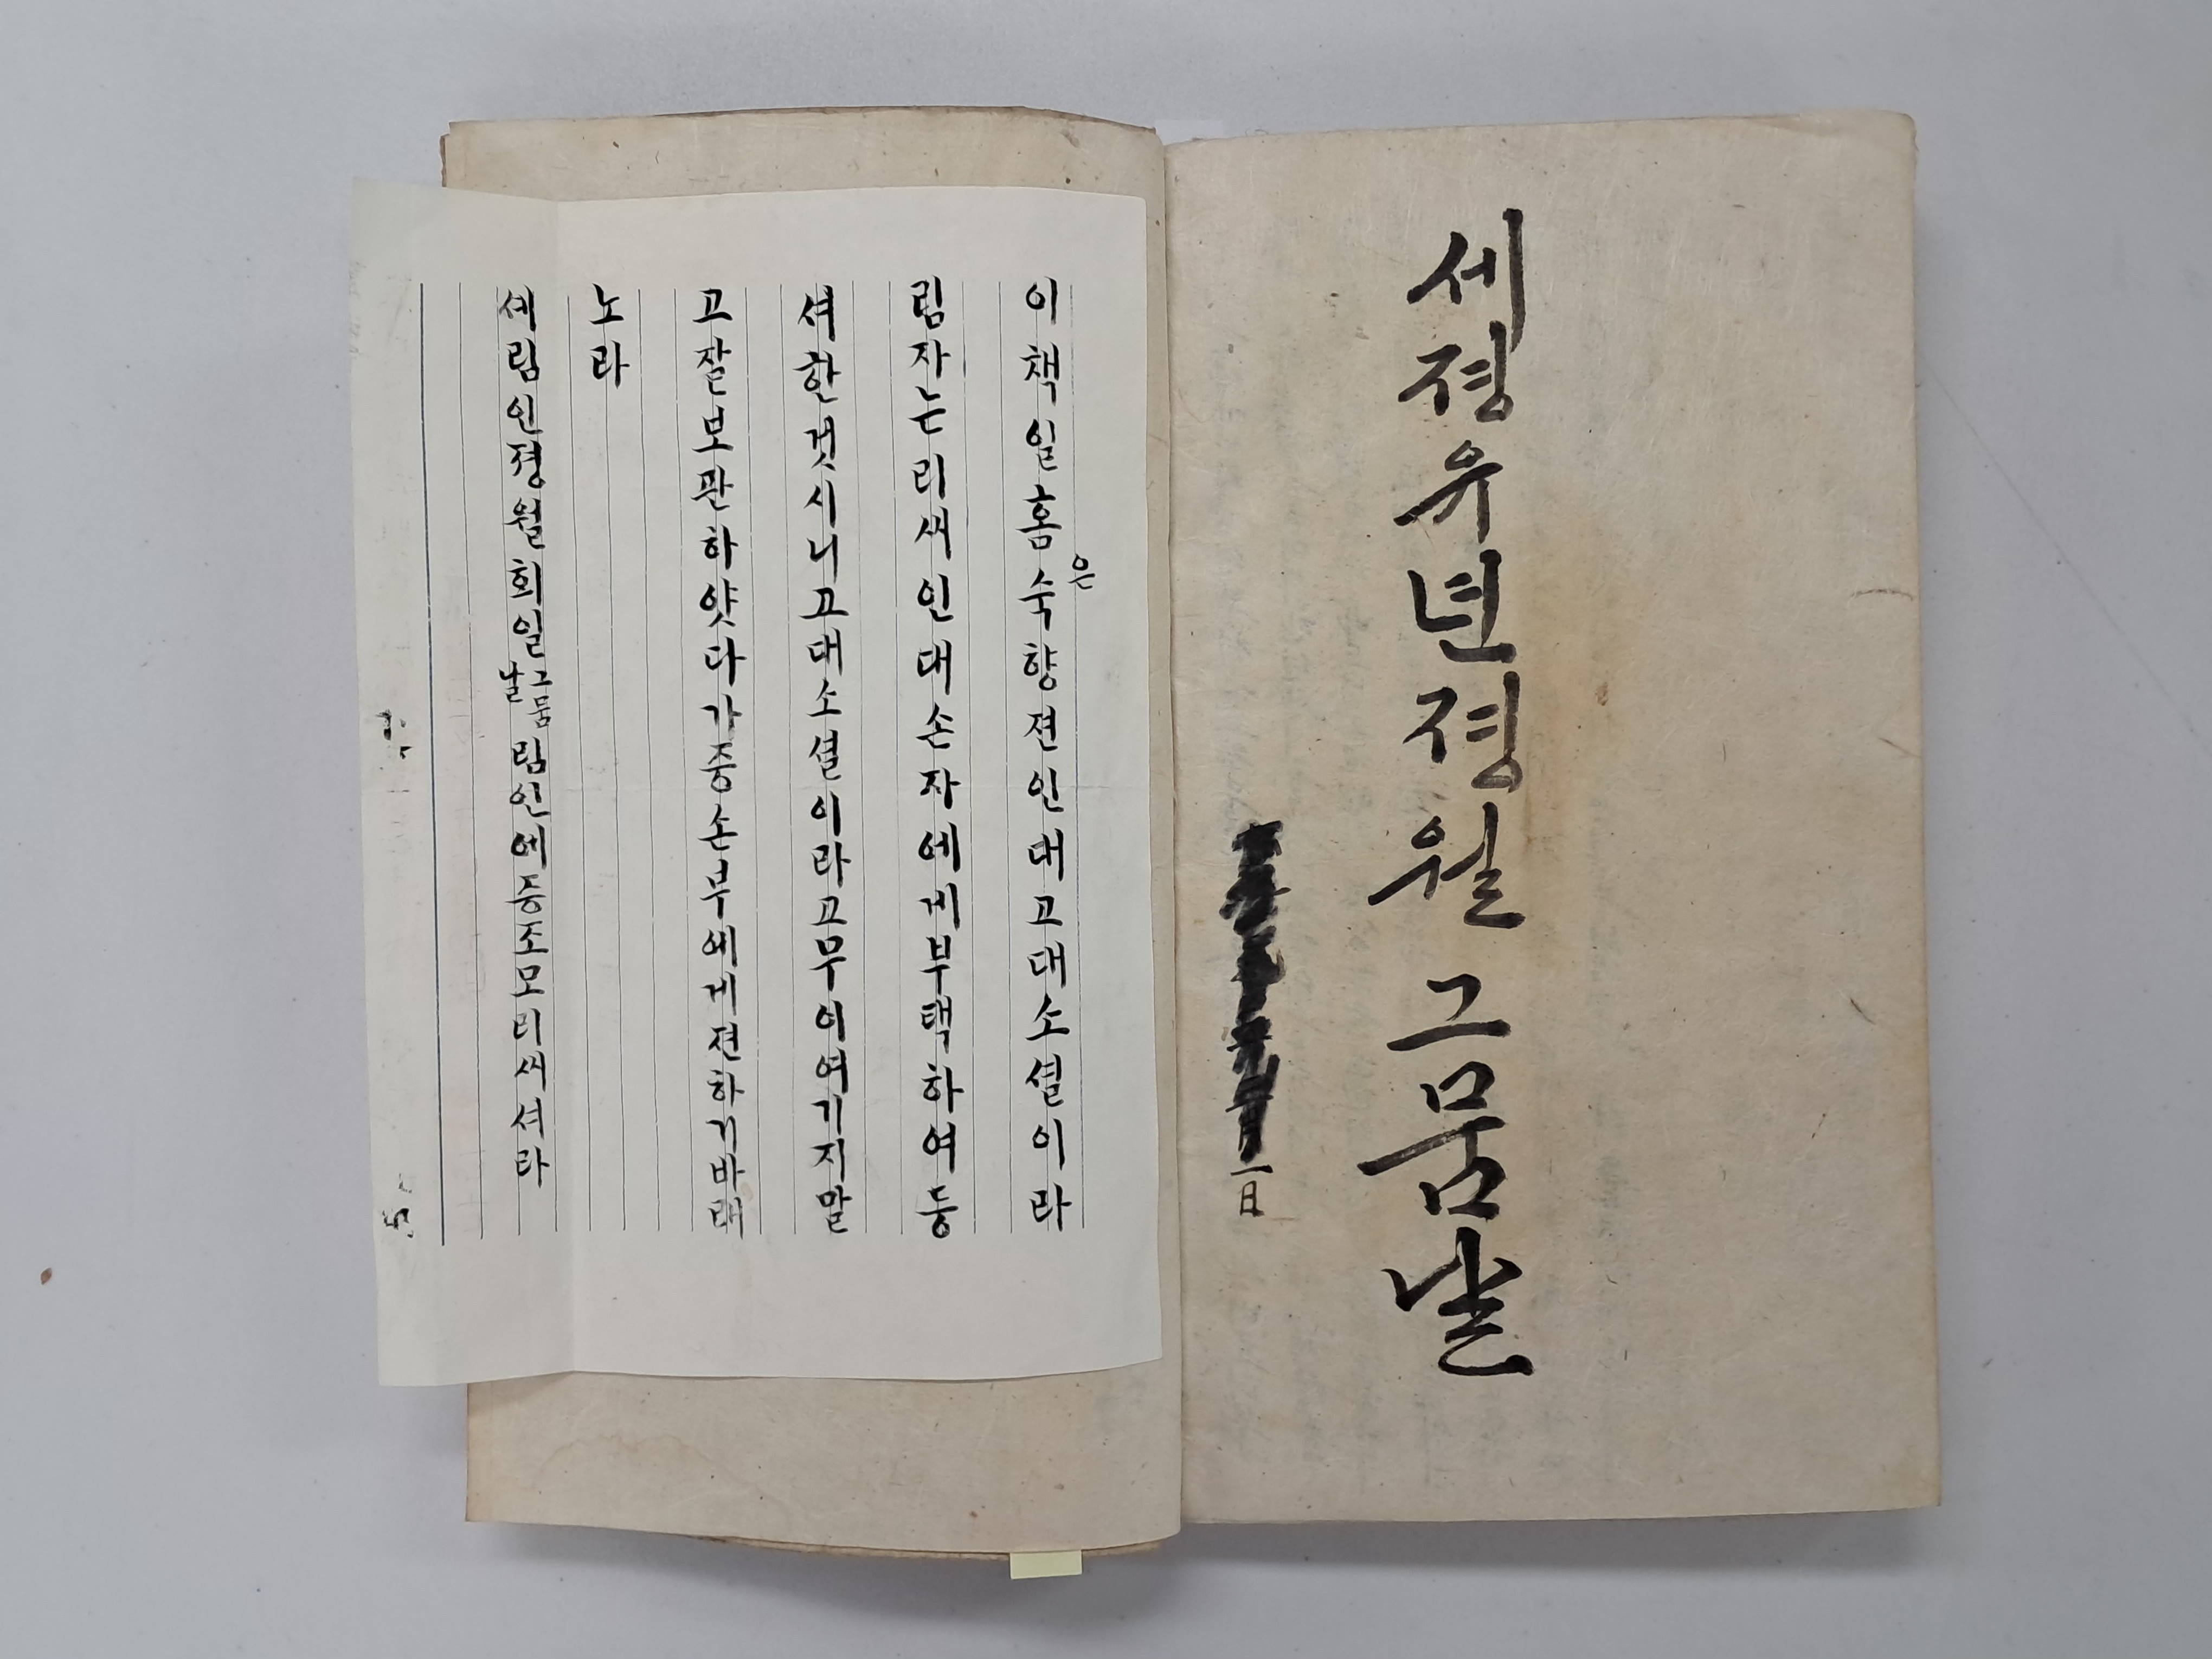 세졍유년졍월 그뭄날
一日
이책일홈은숙향젼인대고대소셜이라
림자는리씨인대손자에게부택하여등
셔한것시니고대소셜이라고무이여기지말
고잘보관하얏다가중손부에게젼하기바래
노라
셰림인졍월회일그뭄날림인에증조모리씨셔라